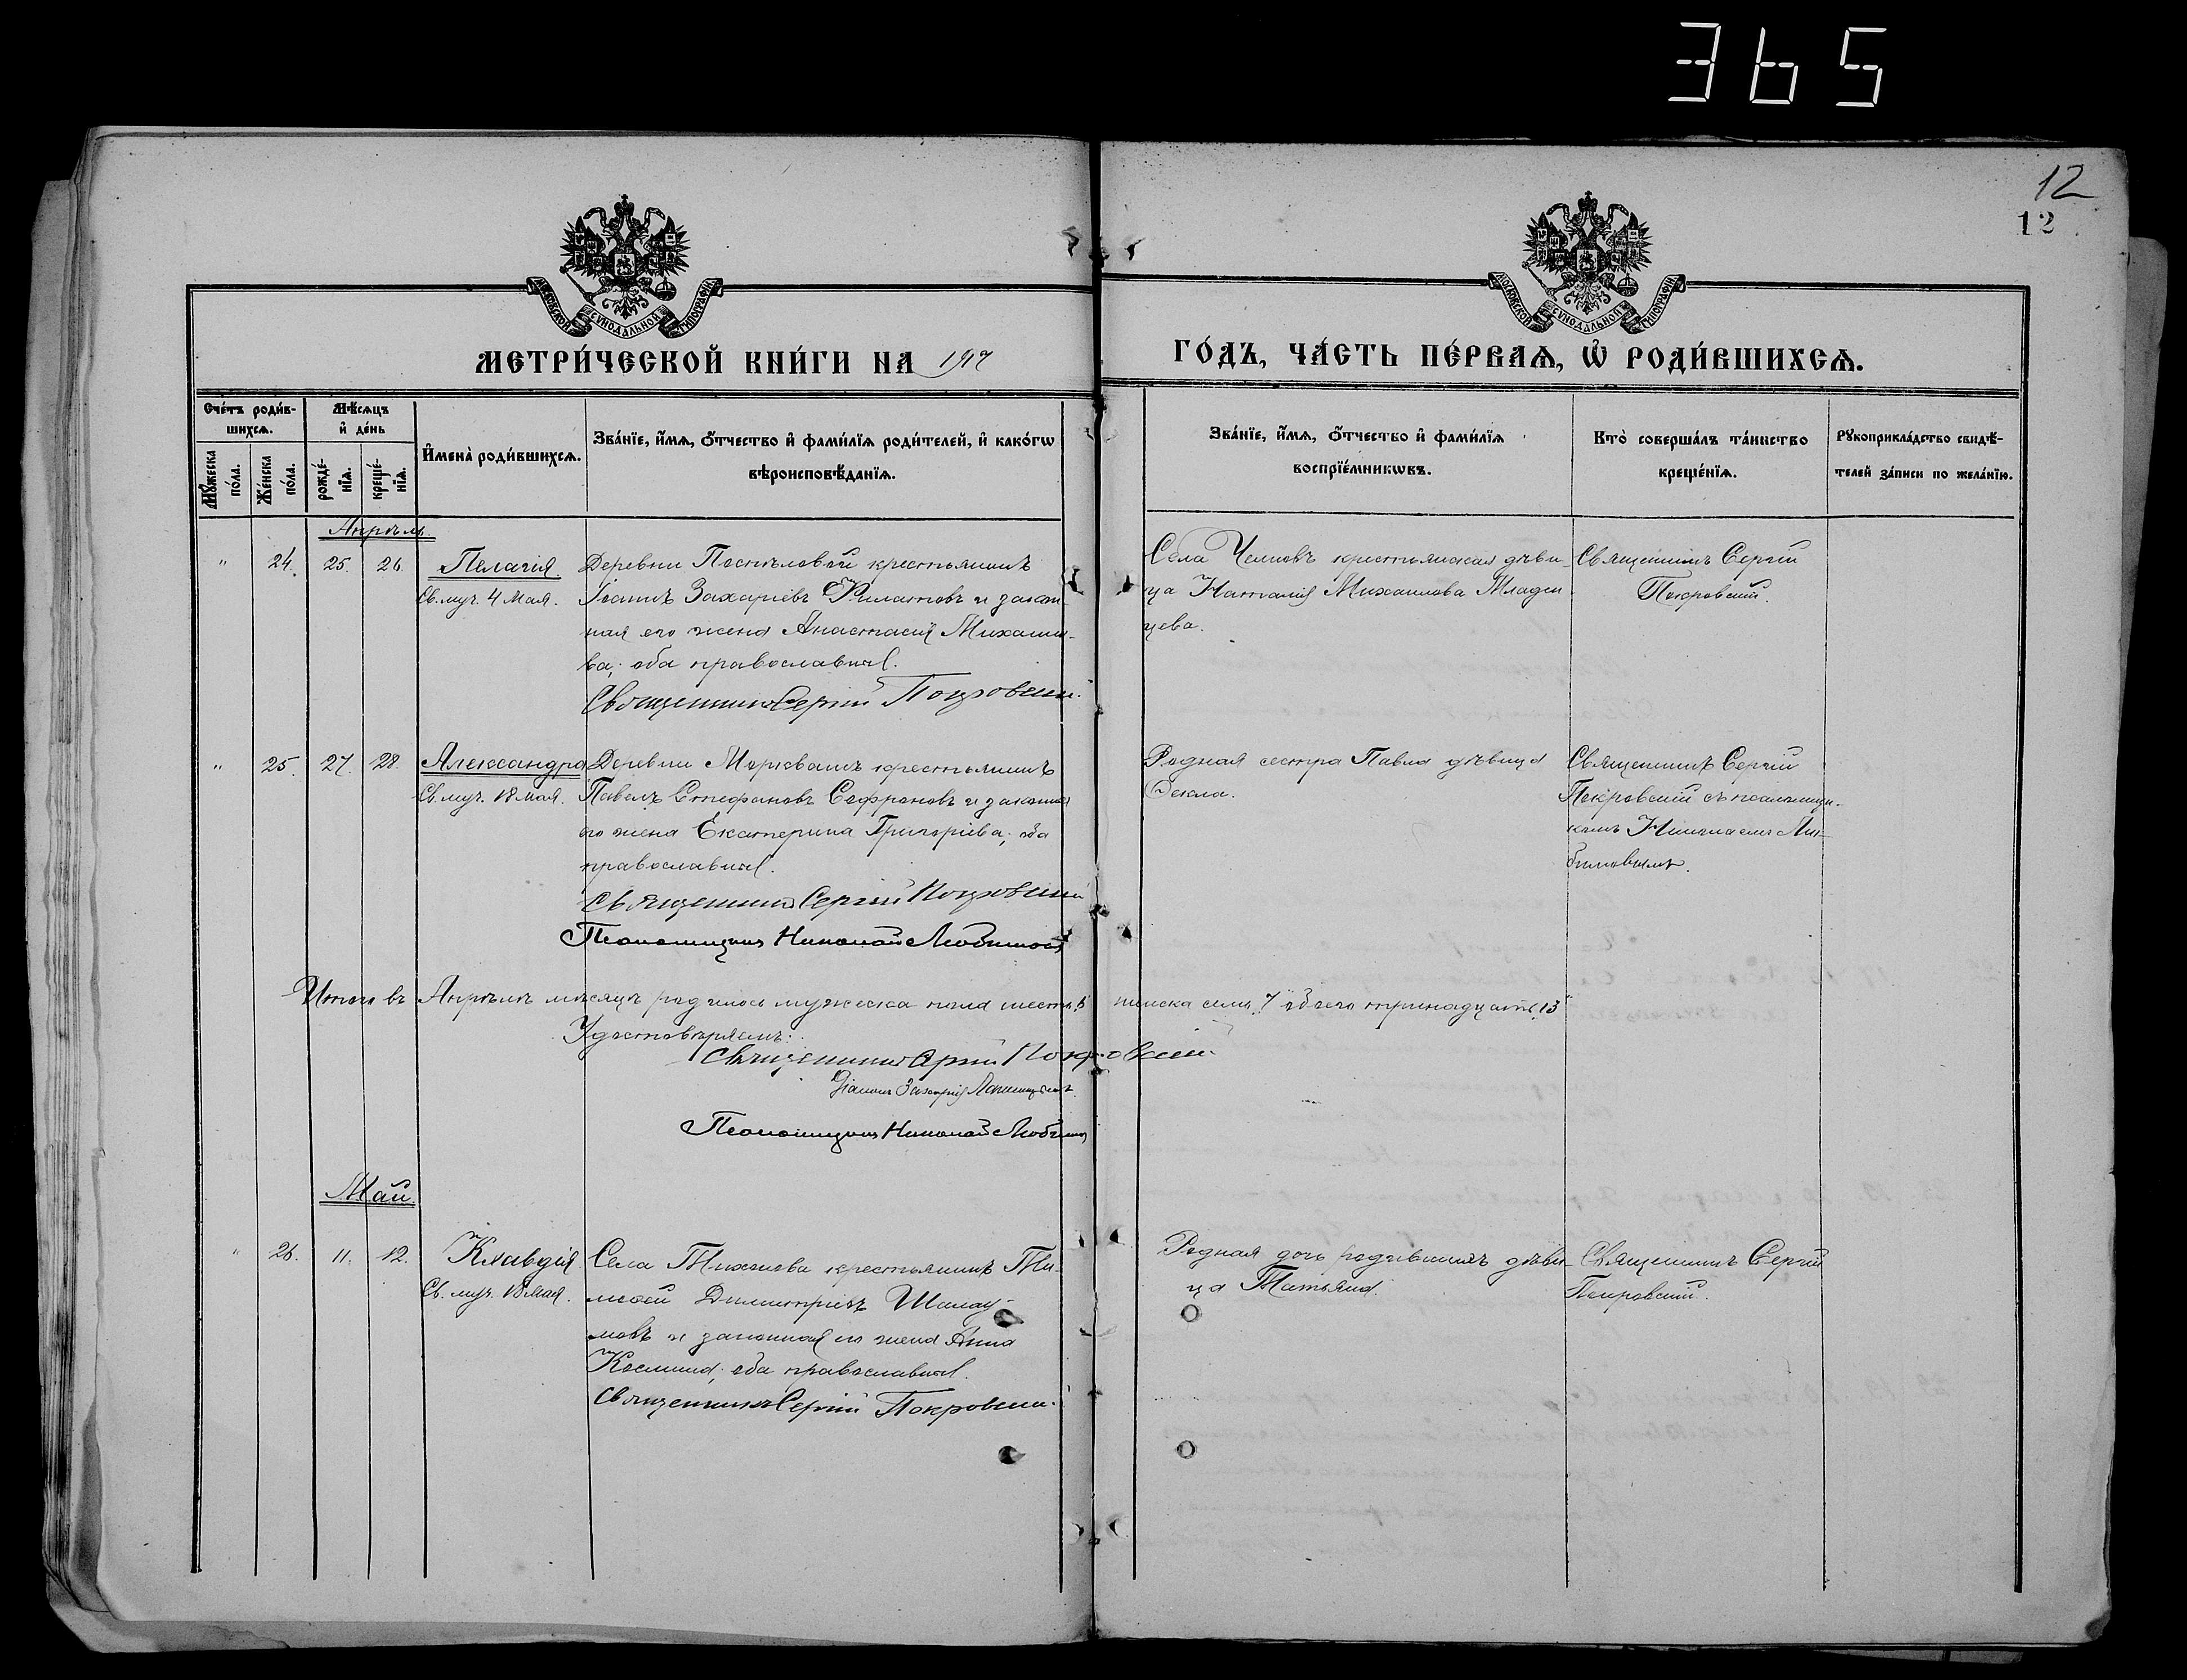 365
12
12
МОСКОВСКОЙ СѴНОДАЛЬНОЙ ТИПОГРАФІИ
МОСКОВСКОЙ СѴНОДАЛЬНОЙ ТИПОГРАФІИ
МЕТРИ́ЧЕСКОЙ КНИ́ГИ НА 1917
ГО́ДЪ, ЧА́СТЬ ПЕ́РВАѦ, Ѡ҆ РОДИ́ВШИХСѦ.
Сче́тъ роди́в-
шихсѧ.
Мѣ́сѧцъ
и҆ де́нь
Мꙋ́жеска
по́ла.
Же́нска
по́ла.
рожде́-
нїѧ.
креще́-
нїѧ.
И҆мена̀ роди́вшихсѧ.
Зва́нїе, и҆́мѧ, ѻ҆́тчество и҆ фами́лїѧ роди́телей, и҆ како́гѡ
вѣроисповѣ́данїѧ.
Зва́нїе, и҆́мѧ, ѻ҆́тчество и҆ фами́лїѧ
воспрїе́мникѡвъ.
Кто̀ соверша́лъ та́инство
креще́нїѧ.
Рꙋкоприкла́дство свидѣ́-
телей за́писи по жела́нїю.
Апрѣль.
" 24. 25. 26. Пелагія.
Св. муч. 4 Мая.
Деревни крестьянинъ
Іоаннъ Захаріевъ Филатовъ и закон-
ная его жена Анастасія Михаило-
ва; оба православные.
Священникъ Сергій Покровскій.
Села крестьянская дѣви-
ца Наталія Михаилова Младен-
цева.
Священникъ Сергій
Покровскій.
" 25. 27. 28. Александра
Св. муч. 18 мая.
Деревни крестьянинъ
Павелъ Стефановъ Сафроновъ и законная
его жена Екатерина Григоріева; оба
православные.
Священникъ Сергій Покровскій
Псаломщикъ Николай Любимовъ
Родная сестра Павла дѣвица
Ѳекла.
Священникъ Сергій
Покровскій съ псаломщи-
комъ Николаемъ Лю-
бимовымъ.
Итого въ Апрѣлѣ мѣсяцѣ родилось мужеска пола шесть "6" женска семь "7" обоего тринадцать "13"
Удостовѣряемъ:
Священникъ Сергій Покровскій.
Діаконъ Захарій
Псаломщикъ Николай Любимовъ
Май.
" 26. 11. 12. Клавдія
Св. муч. 18 мая.
Села крестьянинъ Ти-
моѳей Димитріевъ Шалау-
мовъ и законная его жена Анна
Космина; оба православные.
Священникъ Сергій Покровскій.
Родная дочь родившихъ дѣви-
ца Татьяна.
Священникъ Сергій
Покровскій.